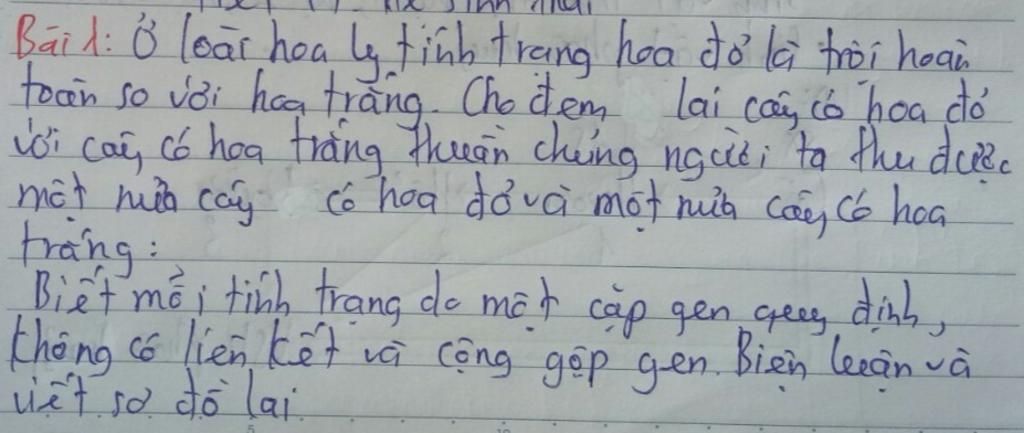 Bài 1: Ở loài hoa ly tính trạng hoa đỏ là trội hoàn
toàn so với hoa trắng. Cho đem lai cây có hoa đỏ
với cây có hoa trắng thuần chủng người ta thu được
một nửa cây có hoa đỏ và một nửa cây có hoa
trắng:
Biết mỗi tính trạng do một cặp gen quy định,
không có liên kết và cộng gộp gen. Biện luận và
viết sơ đồ lai